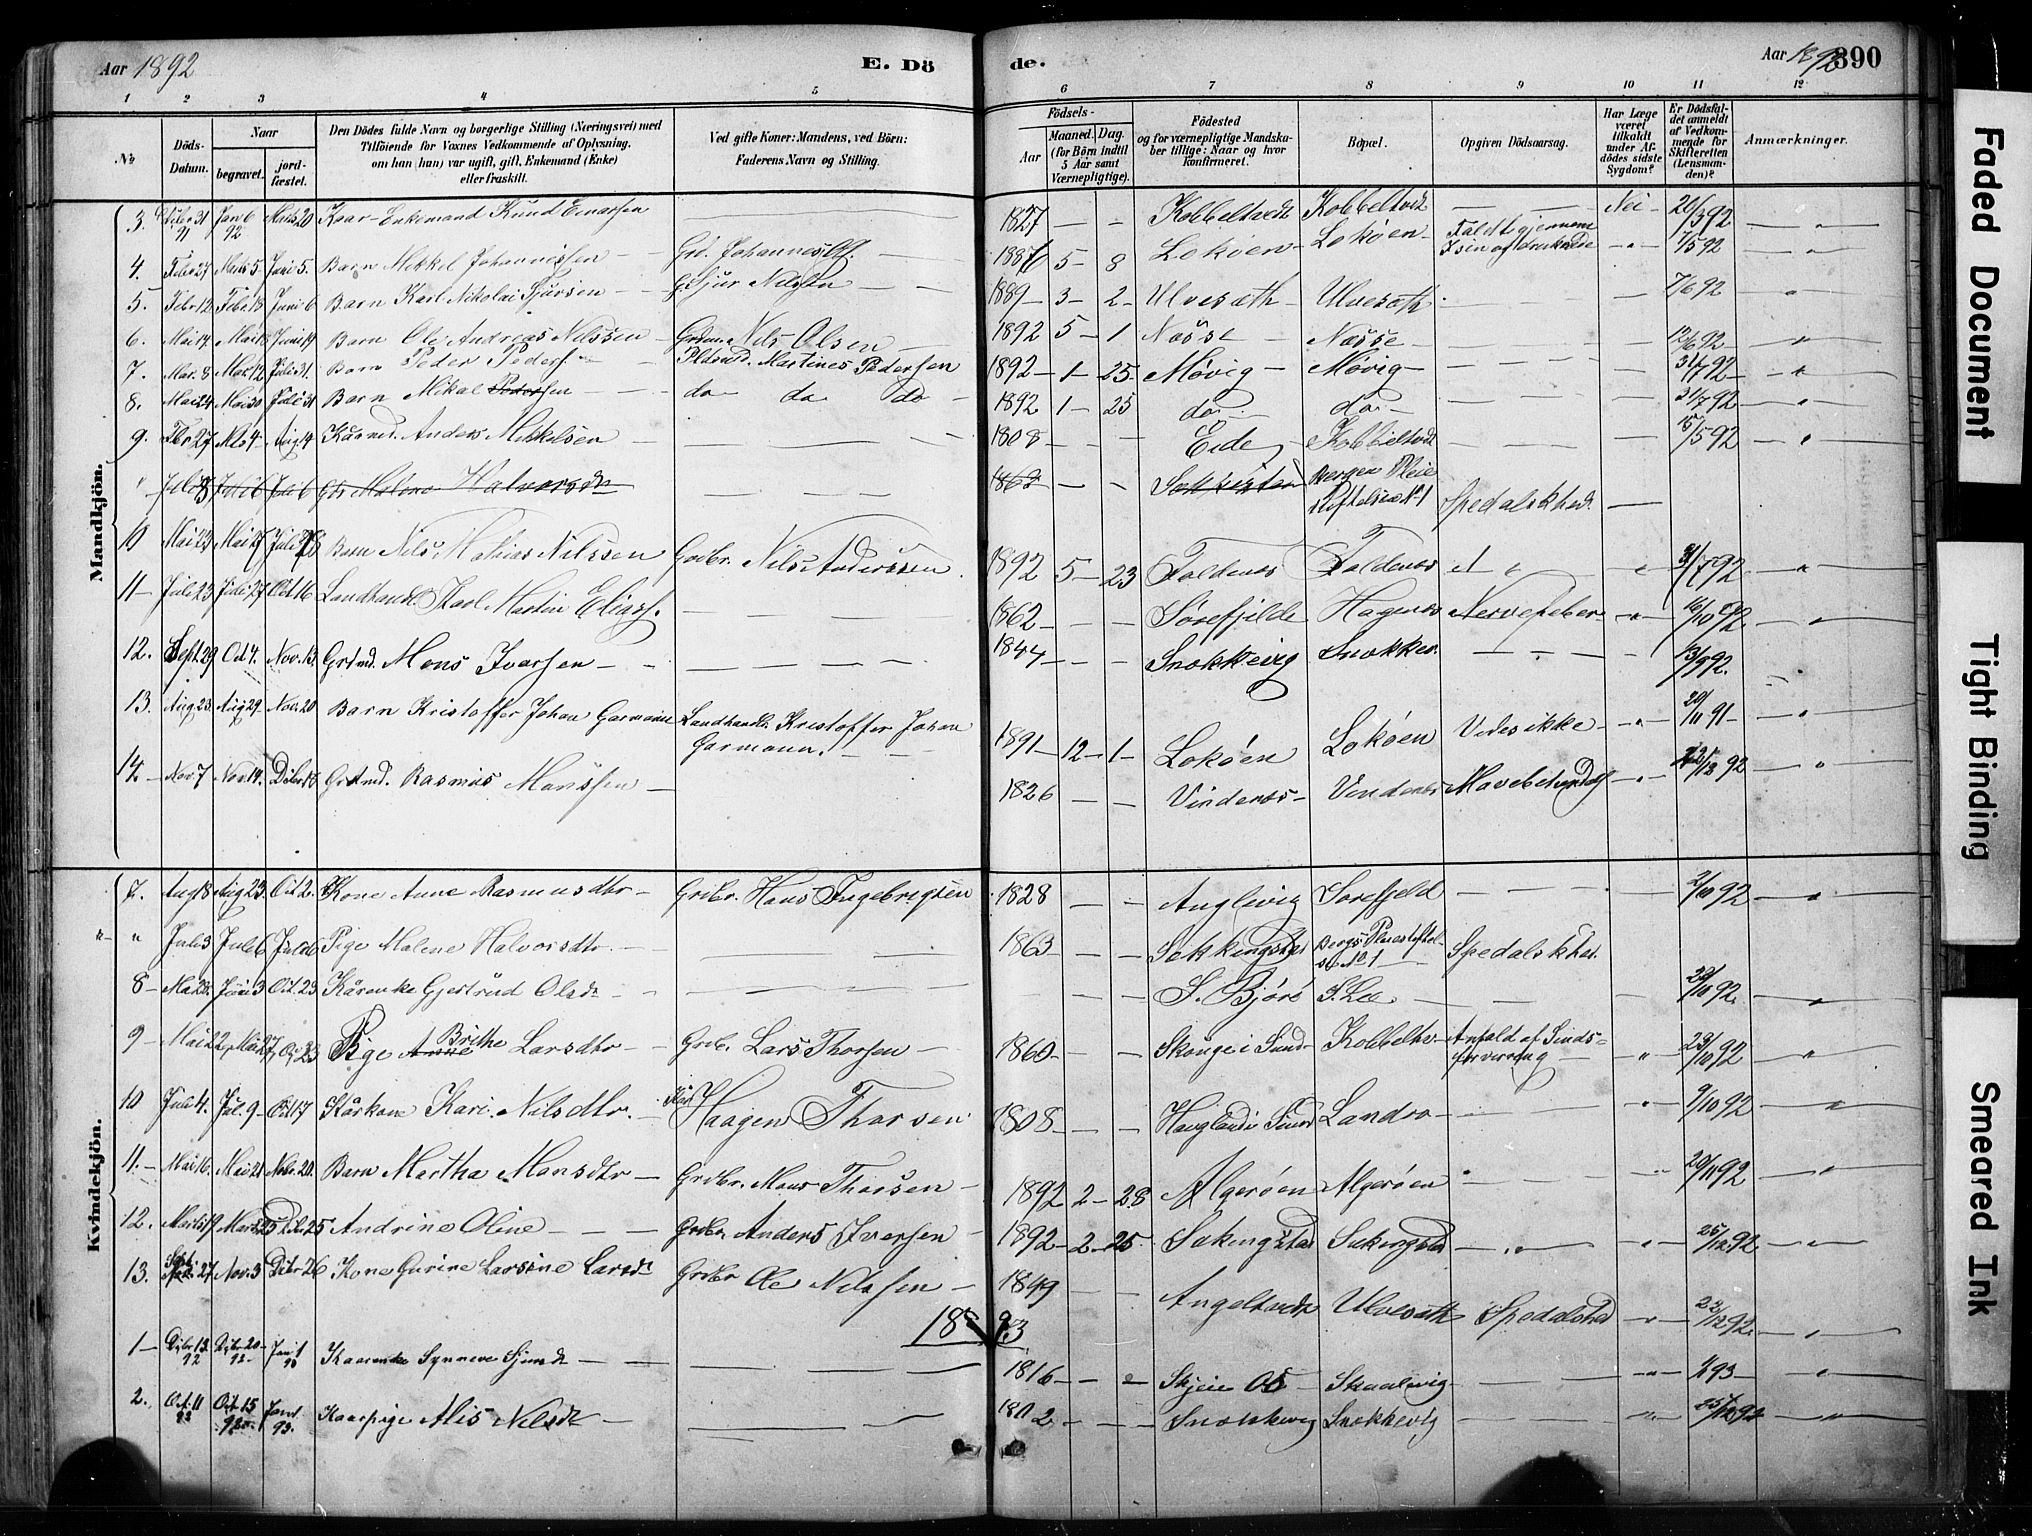 Aar 1892
E. Dö
de.
Aar 1892
390
1 2 3 4 5 6 7 8 9 10 11 12
No
Döds-Datum.
Naar
begravet.
jord-fæstet.
Den Dödes fulde Navn og borgerlige Stilling (Næringsvei) med
Tilföiende for Voxnes Vedkommende af Oplysning,
om han (hun) var ugift, gift, Enkemand (Enke)
eller fraskilt.
Ved gifte Koner: Mandens, ved Börn:
Faderens Navn og Stilling.
Födsels-
Aar
Maaned. Dag.
(for Börn indtil
5 Aar samt
Værnepligtige).
Födested
og for værnepligtige Mandska-
ber tillige: Naar og hvor
konfirmeret.
Bopæl.
Opgiven Dödsaarsag.
Har Læge
været
tilkaldt
under Af-
dödes sidste
Sygdom?
Er Dödsfal-
det anmeldt
af Vedkom-
mende for
Skifteretten
(Lensman-
den)?
Anmærkninger.
Mandkjön.
3. Dcbr 31 91 Jan 6 92 Marts 20 Kaar-Enkemand Knud Einarsen 1827 Kobbeltvedt Kobbeltvedt Nei 20/3 92
4. Febr 27 Marts 5 Juni 5. Barn Mikkel Johannessen 5 8 Lokøen Lokøen Faldt igjennem Isen og druknede 92
5. Febr 12 Febr 18 Juni 6 Barn Karl Nikolai Sjursen Sjur Nilsen 1889 3 2 Ulvesæth Ulvesæth 7/6 92
6. Mai 17. Mai Juni 19 Barn Ole Andreas Nilssen Nils Olsen 1892 5 1 Næsse Næsse 12/6 92
7. Mar. 8 Mar. 12 Juli 31. Barn Peder Peders Pladsmd. Martines Pedersen 1892 1 25 Møvig Møvig 31/7 92
8. Mai 24 Mai 30 Juli 31 Barn Mikal Pedersen do do do 1892 1 25 do do 31/7 92
9. Fbr 27 Mts 4 Aug 14 Kaarmd. Anders Mikkelsen 1808 Eide Kobbeltvedt 15/5 92
Juli 3 Juli 6 Juli 6 Malene Halvorsdtr 1862 Bergen Pleie Stiftelse No 1 Spedalskhed
10 Mai 23 Mai 27 Juli Barn Nils Mathias Nilssen Grdbr. Nils Anderssen 1892 5 23 Foldenes Foldenes 31/7 92
11 Juli 23 Juli 27 Oct 16 Landhandl. Karl Martin Eliass. 1862 Sørefjilde Hagenæs Nervefeber 16/10 92
12. Sept 29 Oct 4. Nov. 13. Grdmd. Mons Ivarsen 1844 Snekkevig Snekkev. 13/9 92.
13. Aug 23. Aug 29 Nov. 20 Barn Kristoffer Johan Garmann Landhandl. Kristoffer Johan
Garmann. 1891 12 1 Lokøen Lokøen Vides ikke 20/11 91
14. Nov. 7 Nov. 14. Dcbr 18 Grdmd. Rasmus Monssen 1826 Vindenes Vindenes 92
Kvindekjön.
7. Aug 18 Aug 23. Oct 2. Kone Anne Rasmusdtr Grdbr. Hans Ingebrigtsen 1828 Anglevig Sørefjeld 2/10 92
" Juli 3 Juli 6 Juli 6 Pige Malene Halvorsdtr. 1863 Sækkingstad Bergs Pleiestiftel-
se No 1 Spedalskhed
8 Mai 28. Juni 3 Oct. 23 Kårenke Gjertrud Olsdr S. Bjørø S. Lee 23/10 92.
9 Mai 22 Mai 27 23 Pige Anne Brithe Larsdtr Grdbr. Lars Thorsen 1860 Skonge i Sund Kobbeltv. Anfald af Sinds-
forvirring 23/10 92
10 Juli 4. Jul. 9 Oct 17 Kårkone Kari Nilsdtr. Haagen Thorsen 1808 Sund Landro 9/10 92
11. Mai 16. Mai 21 Nobr. 20. Barn Martha Monsdtr Grdbr. Mons Thorsen 1892 2 28 Algerøen Algerøen 20/11 92
12. Marts 19 Marts 25 Dcbr 25 Andrine Oline Grdbr. Anders Iversen 1892 2 25 Sækingstad Sækingstad 25/12 92
13. Spt. 27 Nov. 3 Dcbr 26 Kone Gurine Larsine Larsdr Grdbr Ole Nilssen 1849 Angeltvedt Ulvesæth Spedalskhed 23/12 92.
1893
1 Dcbr 13 92 Dcbr 20 92 Jan 1 93 Kaarenke Synneve Sjursdr 1816 Skjeie Os Skaalevig 93
2. Oct. 11 92 Oct. 15 92 Jan 1. 93. Kaarpige Alis Nilsdtr 1802 Snekkevig Snekkevig 25/12 92
Faded Document
Tight Binding
Smeared Ink